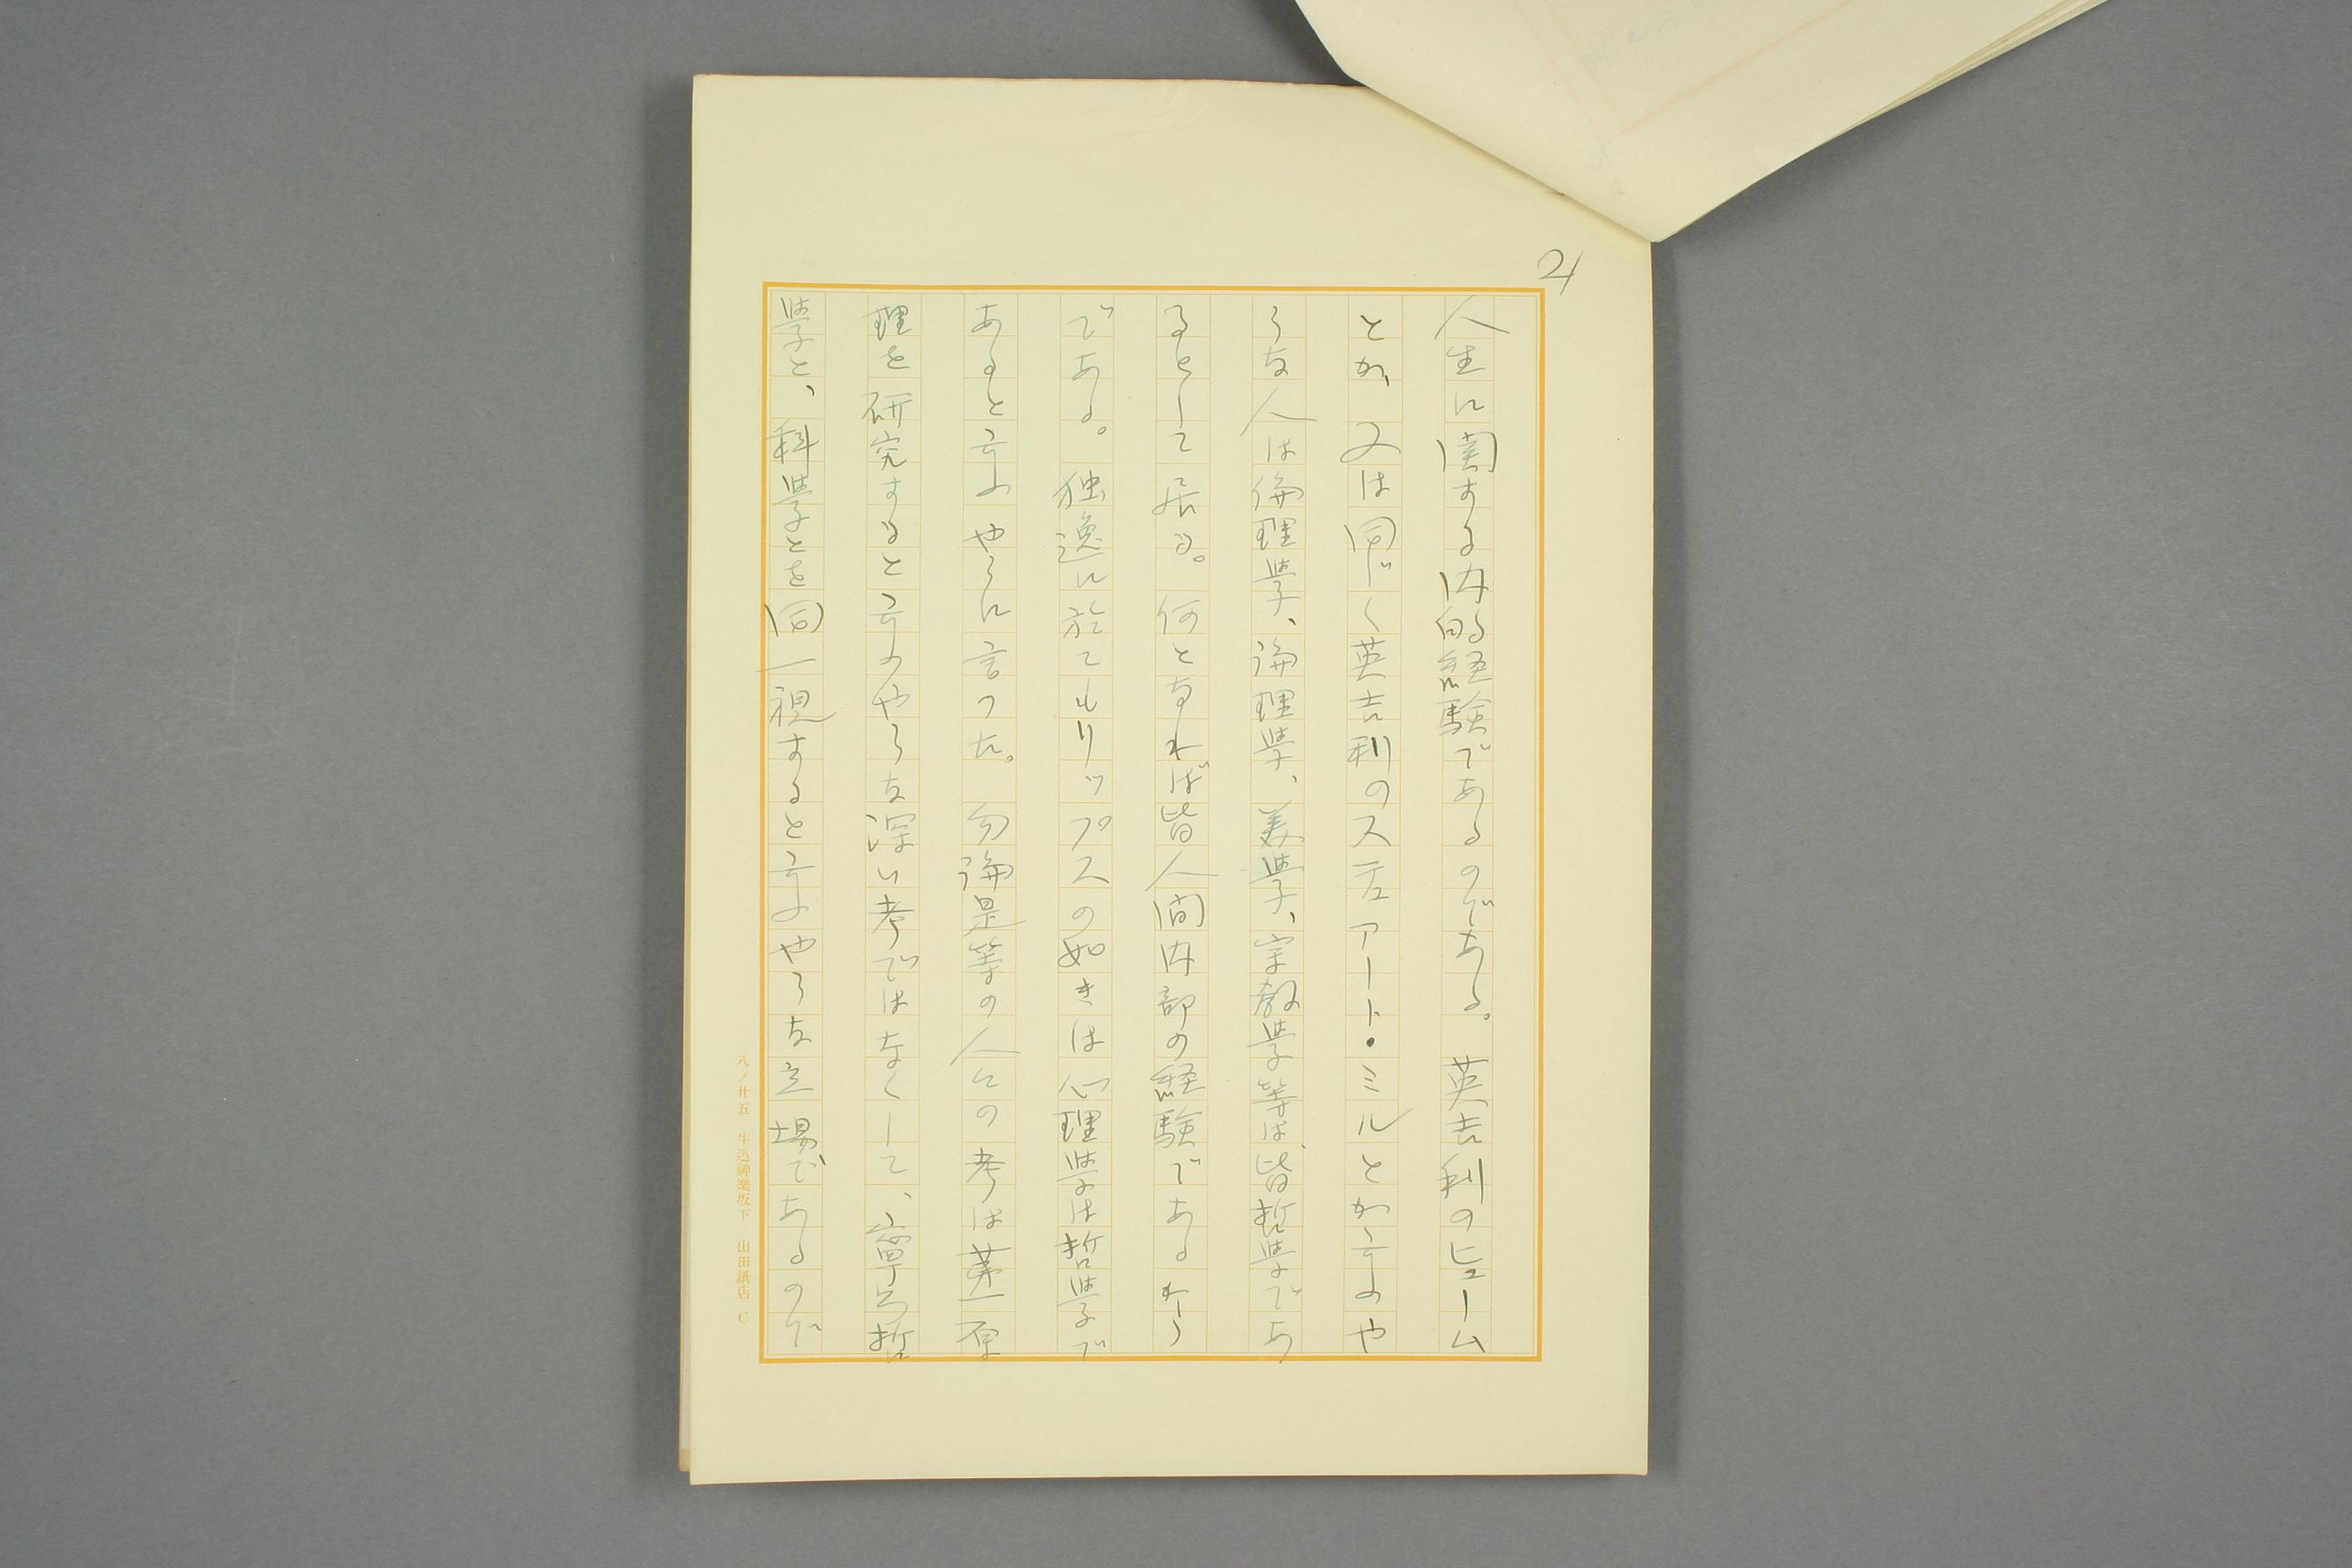 21
人生に関する内的経験であるのである。英吉利のヒューム
とか、又は同じく英吉利のスチアート・ミルとか云ふや
うな人は倫理学、論理学、美学、宗教学等は、皆哲学であ
るとして居る。何となれば皆人間内部の経験であるから
である。独逸に於てもリップスの如きは心理学は哲学で
あると云ふやうに言つた。勿論是等の人々の考は第一原
理を研究すると云ふやうな深い考ではなくして、寧ろ哲
学と、科学とを同一視すると云ふやうな立場であるので
八ノ廿五 牛込神樂坂下 山田紙店 C